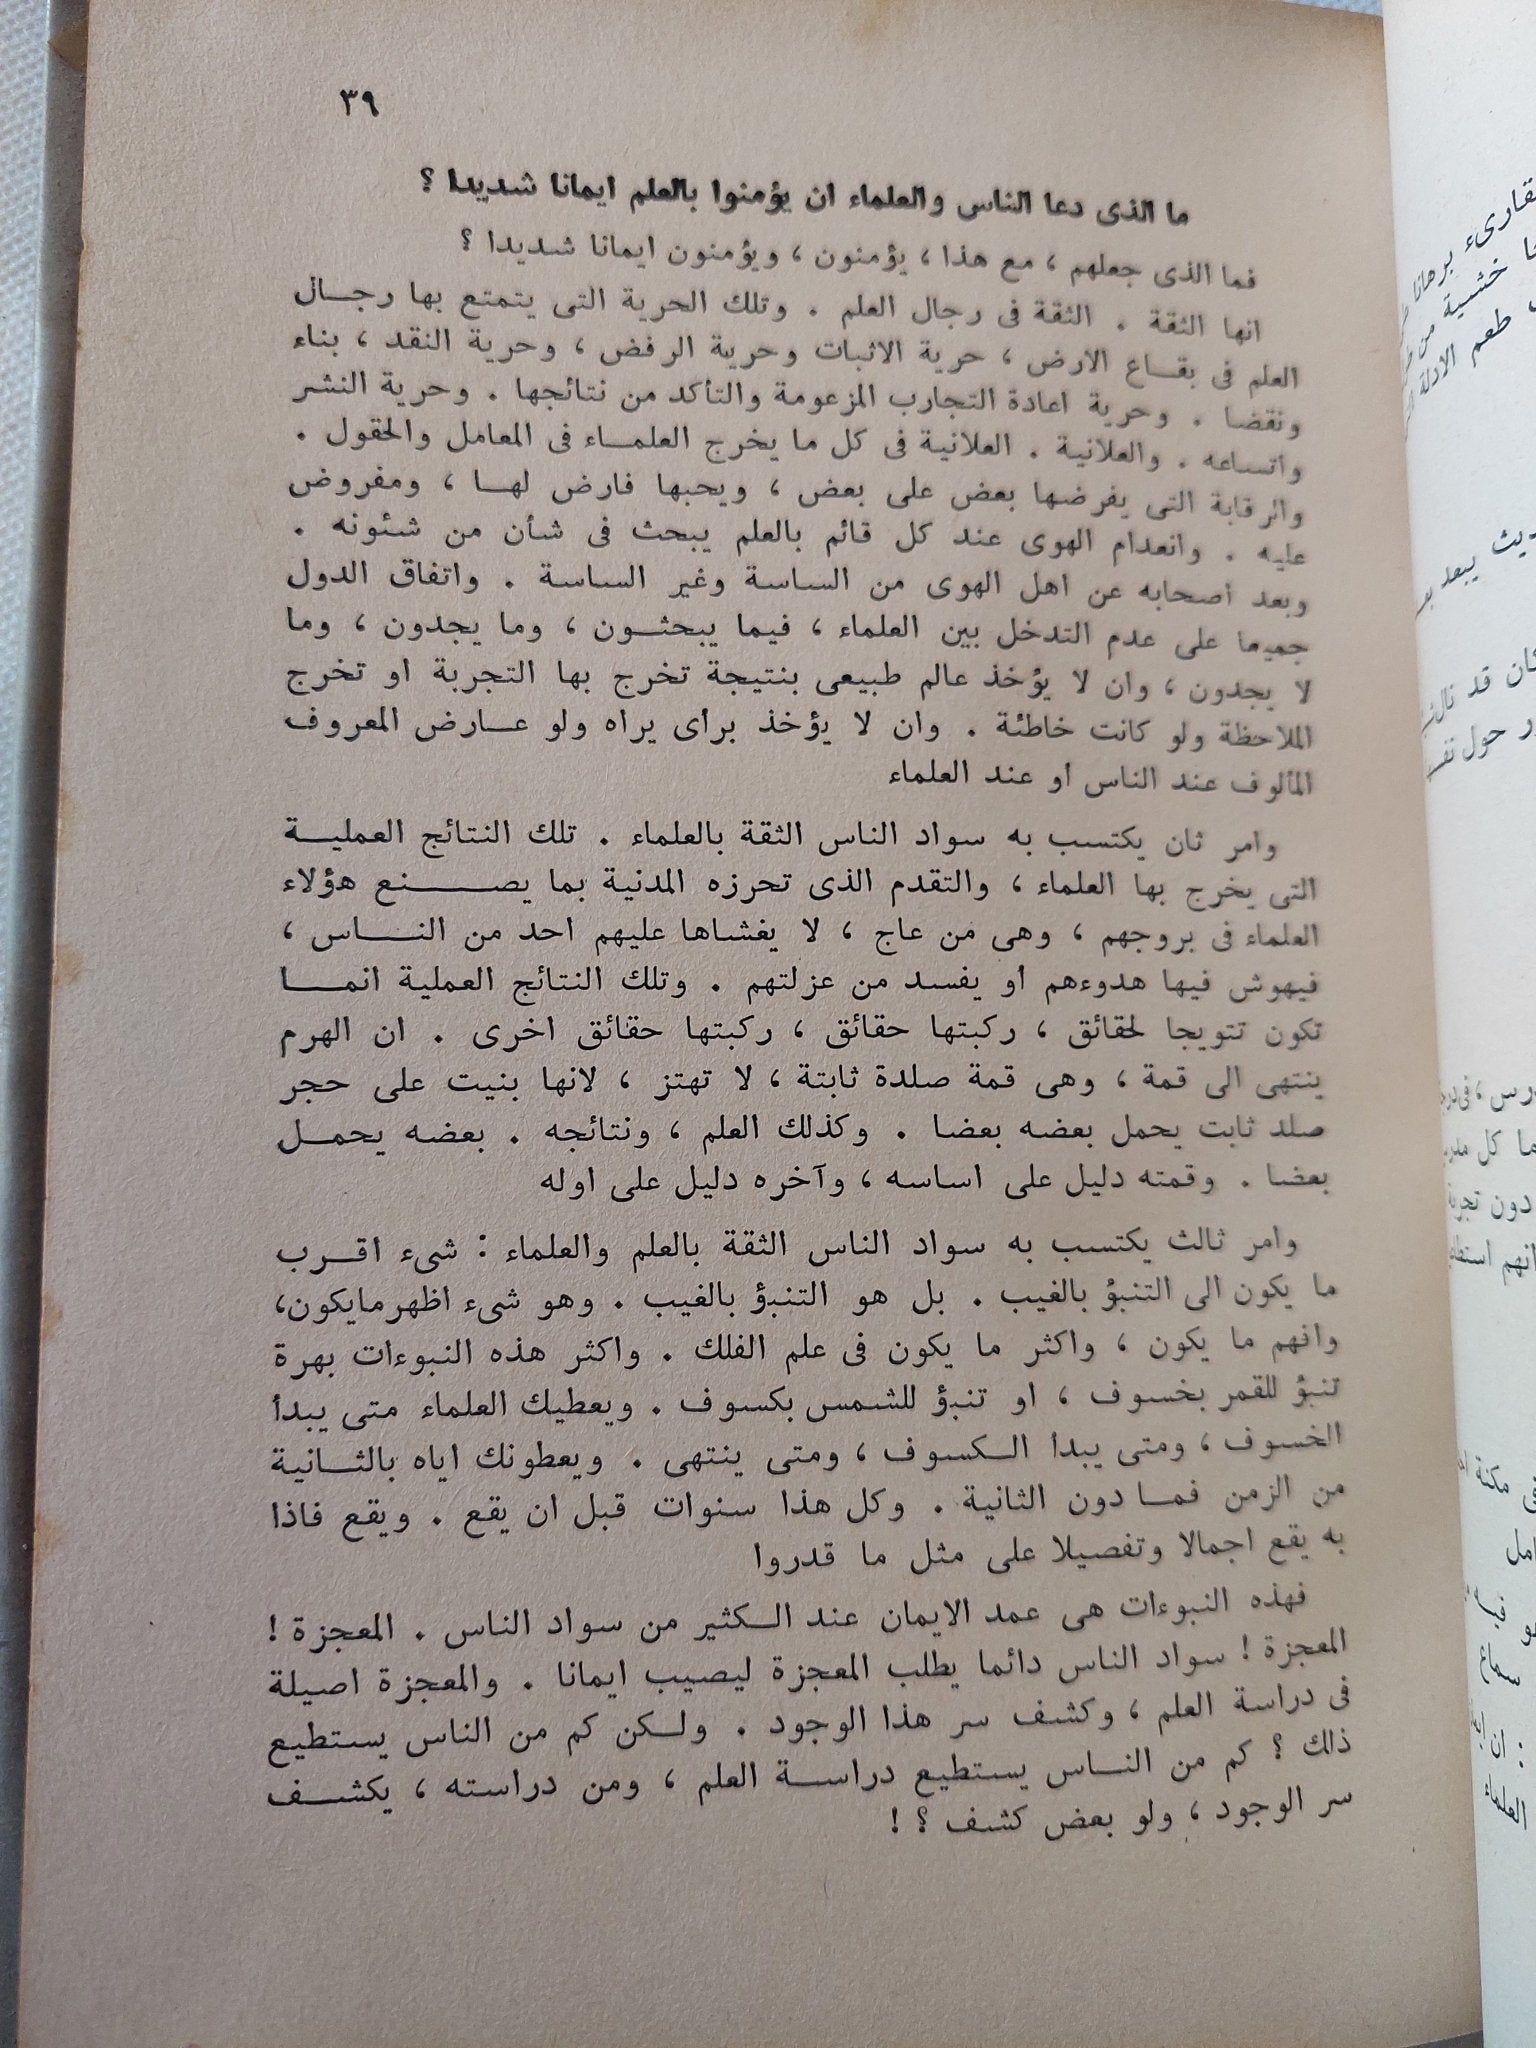 ٣٩
ما الذى دعا الناس والعلماء ان يؤمنوا بالعلم ايمانا شديدا ؟
فما الذى جعلهم ، مع هذا ، يؤمنون ، ويؤمنون ايمانا شديدا ؟
انها الثقة . الثقة فى رجال العلم . وتلك الحرية التى يتمتع بها رجال
العلم فى بقاع الارض ، حرية الاثبات وحرية الرفض ، وحرية النقد ، بناء
ونقضا . وحرية اعادة التجارب المزعومة والتأكد من نتائجها . وحرية النشر
واتساعه . والعلانية . العلانية فى كل ما يخرج العلماء فى المعامل والحقول .
والرقابة التى يفرضها بعض على بعض ، ويحبها فارض لها ، ومفروض
عليه . وانعدام الهوى عند كل قائم بالعلم يبحث فى شأن من شئونه .
وبعد أصحابه عن اهل الهوى من الساسة وغير الساسة . واتفاق الدول
جميعا على عدم التدخل بين العلماء ، فيما يبحثون ، وما يجدون ، وما
لا يجدون ، وان لا يؤخذ عالم طبيعى بنتيجة تخرج بها التجربة او تخرج
الملاحظة ولو كانت خاطئة . وان لا يؤخذ برأى يراه ولو عارض المعروف
المألوف عند الناس أو عند العلماء
وامر ثان يكتسب به سواد الناس الثقة بالعلماء . تلك النتائج العملية
التى يخرج بها العلماء ، والتقدم الذى تحرزه المدنية بما يصنع هؤلاء
العلماء فى بروجهم ، وهى من عاج ، لا يغشاها عليهم احد من الناس ،
فيهوش فيها هدوءهم أو يفسد من عزلتهم . وتلك النتائج العملية انما
تكون تتويجا لحقائق ، ركبتها حقائق ، ركبتها حقائق اخرى . ان الهرم
ينتهى الى قمة ، وهى قمة صلدة ثابتة ، لا تهتز ، لانها بنيت على حجر
صلد ثابت يحمل بعضه بعضا . وكذلك العلم ، ونتائجه . بعضه يحمل
بعضا . وقمته دليل على اساسه ، وآخره دليل على اوله
وامر ثالث يكتسب به سواد الناس الثقة بالعلم والعلماء : شىء اقرب
ما يكون الى التنبؤ بالغيب . بل هو التنبؤ بالغيب . وهو شىء اظهر مايكون،
وافهم ما يكون ، واكثر ما يكون فى علم الفلك . واكثر هذه النبوءات بهرة
تنبؤ للقمر بخسوف ، او تنبؤ للشمس بكسوف . ويعطيك العلماء متى يبدأ
الخسوف ، ومتى يبدأ الكسوف ، ومتى ينتهى . ويعطونك اياه بالثانية
من الزمن فما دون الثانية . وكل هذا سنوات قبل ان يقع . ويقع فاذا
به يقع اجمالا وتفصيلا على مثل ما قدروا
فهذه النبوءات هى عمد الايمان عند الكثير من سواد الناس . المعجزة !
المعجزة ! سواد الناس دائما يطلب المعجزة ليصيب ايمانا . والمعجزة اصيلة
فى دراسة العلم ، وكشف سر هذا الوجود . ولكن كم من الناس يستطيع
ذلك ؟ كم من الناس يستطيع دراسة العلم ، ومن دراسته ، يكشف
سر الوجود ، ولو بعض كشف ؟ !